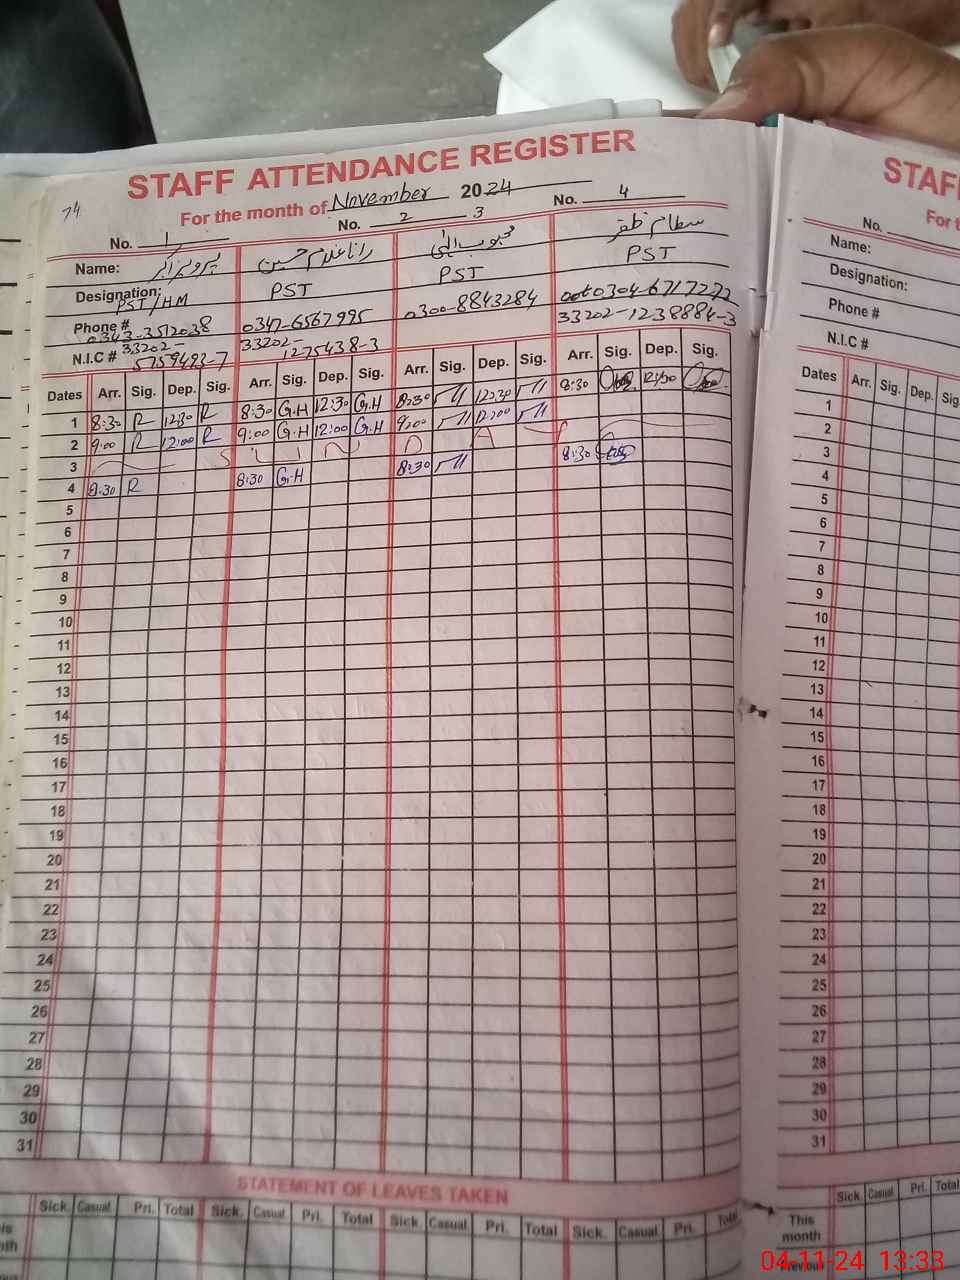 STAFF ATTENDANCE REGISTER
74
For the month of November 2024
No. 1 No. 2 3 No. 4
Name: پرویز اکبر رانا غلام حسین محبوب الٰہی سطام ظفر
Designation: PST/HM PST PST PST
Phone # 0343-3512038 0347-6567995 0300-8843284 0304-6717272
N.I.C # 33202-5759493-7 33202-1275438-3 33202-1238884-3
Dates Arr. Sig. Dep. Sig. Arr. Sig. Dep. Sig. Arr. Sig. Dep. Sig. Arr. Sig. Dep. Sig.
1 8:30 R 12:30 R 8:30 G.H 12:30 G.H 8:30 12:30 8:30 12:30
2 9:00 R 12:00 R 9:00 G.H 12:00 G.H 9:00 12:00
3 S U N D A Y
4 8:30 R 8:30 G.H 8:30 8:30
5
6
7
8
9
10
11
12
13
14
15
16
17
18
19
20
21
22
23
24
25
26
27
28
29
30
31
STATEMENT OF LEAVES TAKEN
Sick. Casual. Pri. Total Sick. Casual. Pri. Total Sick. Casual. Pri. Total Sick. Casual. Pri. Total
STAF
For t
No.
Name:
Designation:
Phone #
N.I.C #
Dates Arr. Sig. Dep. Sig.
1
2
3
4
5
6
7
8
9
10
11
12
13
14
15
16
17
18
19
20
21
22
23
24
25
26
27
28
29
30
31
Sick. Casual. Pri. Total
This
month
04.11-24 13:33